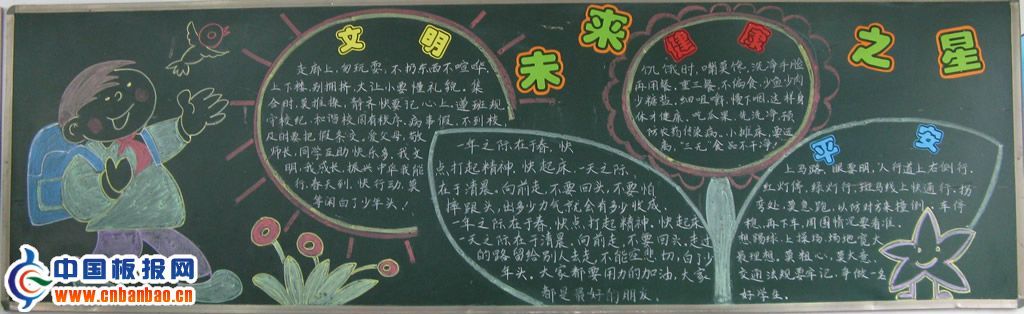 未来之星
文明
走廊上,勿玩耍,不扔东西不喧哗,
上下楼,别拥挤,大让小要懂礼貌,集
合时,莫推搡,静齐快要记心上,遵班规,
守校纪,和谐校园有秩序,病事假,不到校,
及时要把假条交,爱父母,敬
师长,同学互助快乐多,我文
明,我成长,振兴中华我能
行,春天到,快行动,莫
等闲白了少年头!
一年之际在于春,快
点,打起精神,快起床,一天之际,
在于清晨。向前走,不要回头,不要怕
摔跟头,出多少力气就会有多少收成。
一年之际在于春,快点,打起精神,快起床
一天之际在于清晨,向前走,不要回头,走过
的路留给别人去走,不能空悲切,白了少
年头,大家都要用力的加油,大家
都是最好的朋友。
健康
饥饿时,嚼莫馋,洗净手脸
再用餐,重三餐,不偏食,少鱼少肉
少糖盐,细咀嚼,慢下咽,这样身
体才健康,吃瓜果,先洗净,预
防农药传染病。小摊床,要远
离,“三无”食品不干净!
平安
上马路,眼要明,人行道上右侧行,
红灯停,绿灯行,斑马线上快通行,拐
弯处,莫急跑,以防对方来撞倒,车停
稳,再下车,周围情况要看准,
想踢球,上操场,场地宽大
最理想,莫粗心,莫大意,
交通法规要牢记,争做一名
好学生。
中国板报网
www.cnbanbao.cn